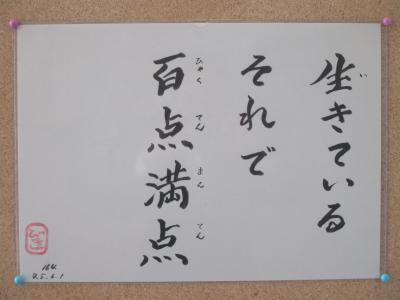 生きている
それで
百点満点
い
ひゃく てん まん てん